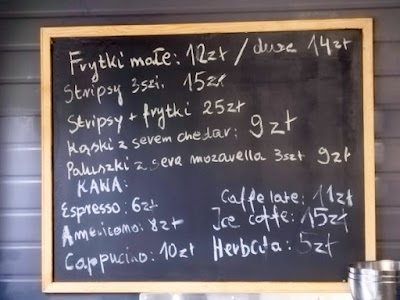 Frytki małe: 12zł / duże 14zł
Stripsy 3szt. 15zł
Stripsy + frytki 25zł
Kąski z serem chedar: 9zł
Paluszki z sera mozavella 3szt 9zł
KAWA:
Espresso: 6zł
Americano: 8zł
Cappucino: 10zł
Caffe late: 11zł
Ice coffe: 15zł
Herbata: 5zł